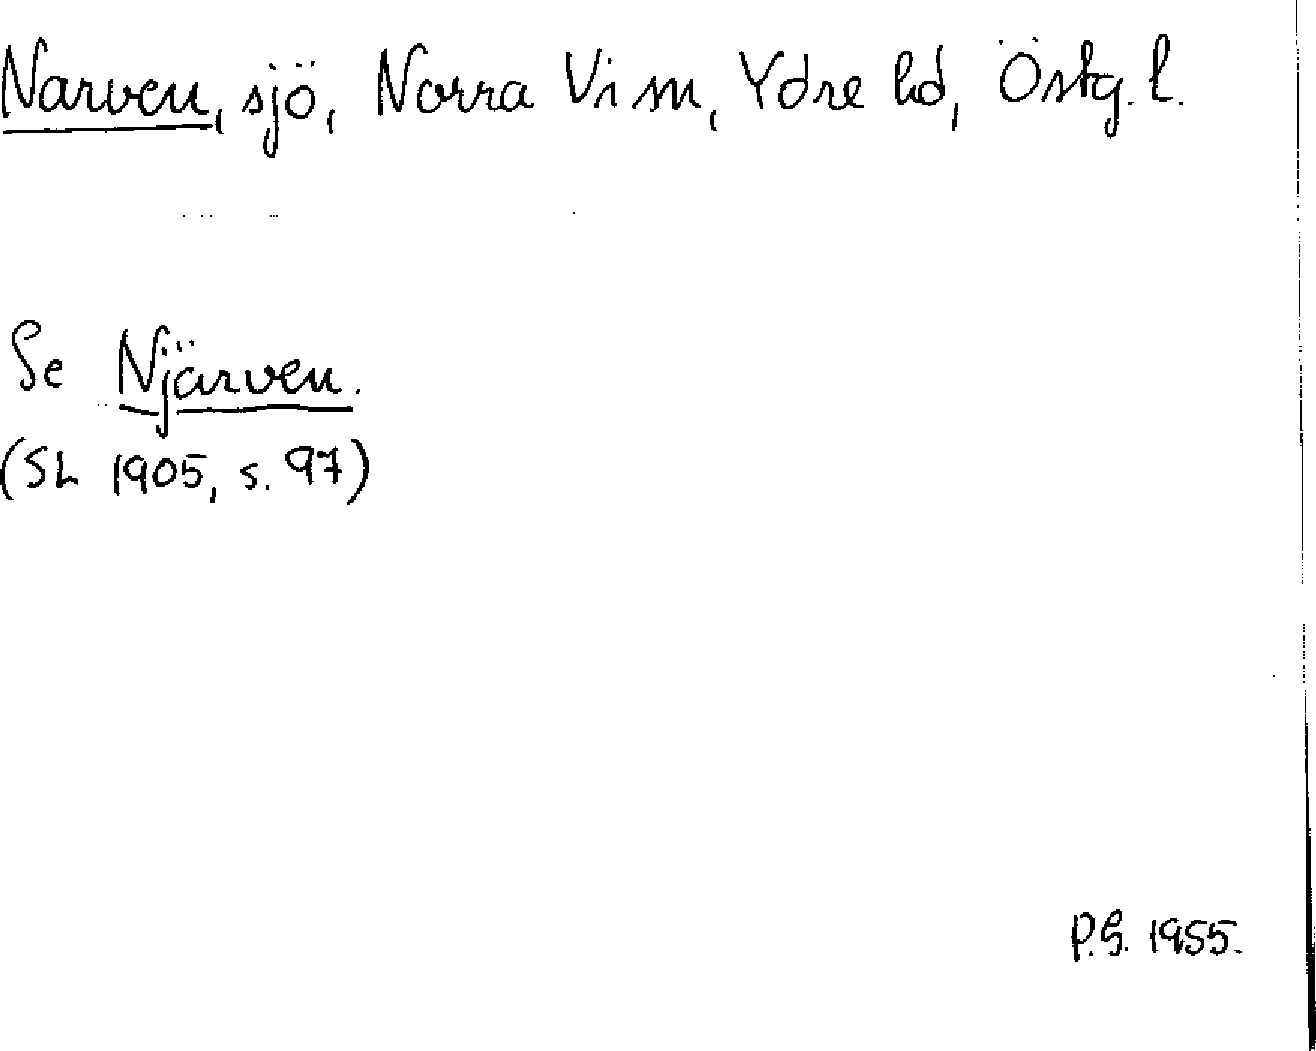 Narven, sjö, Norra Vi sn, Ydre hd, Östg. l.
Se Njärven.
(SL 1905, s. 97)
P.G. 1955.